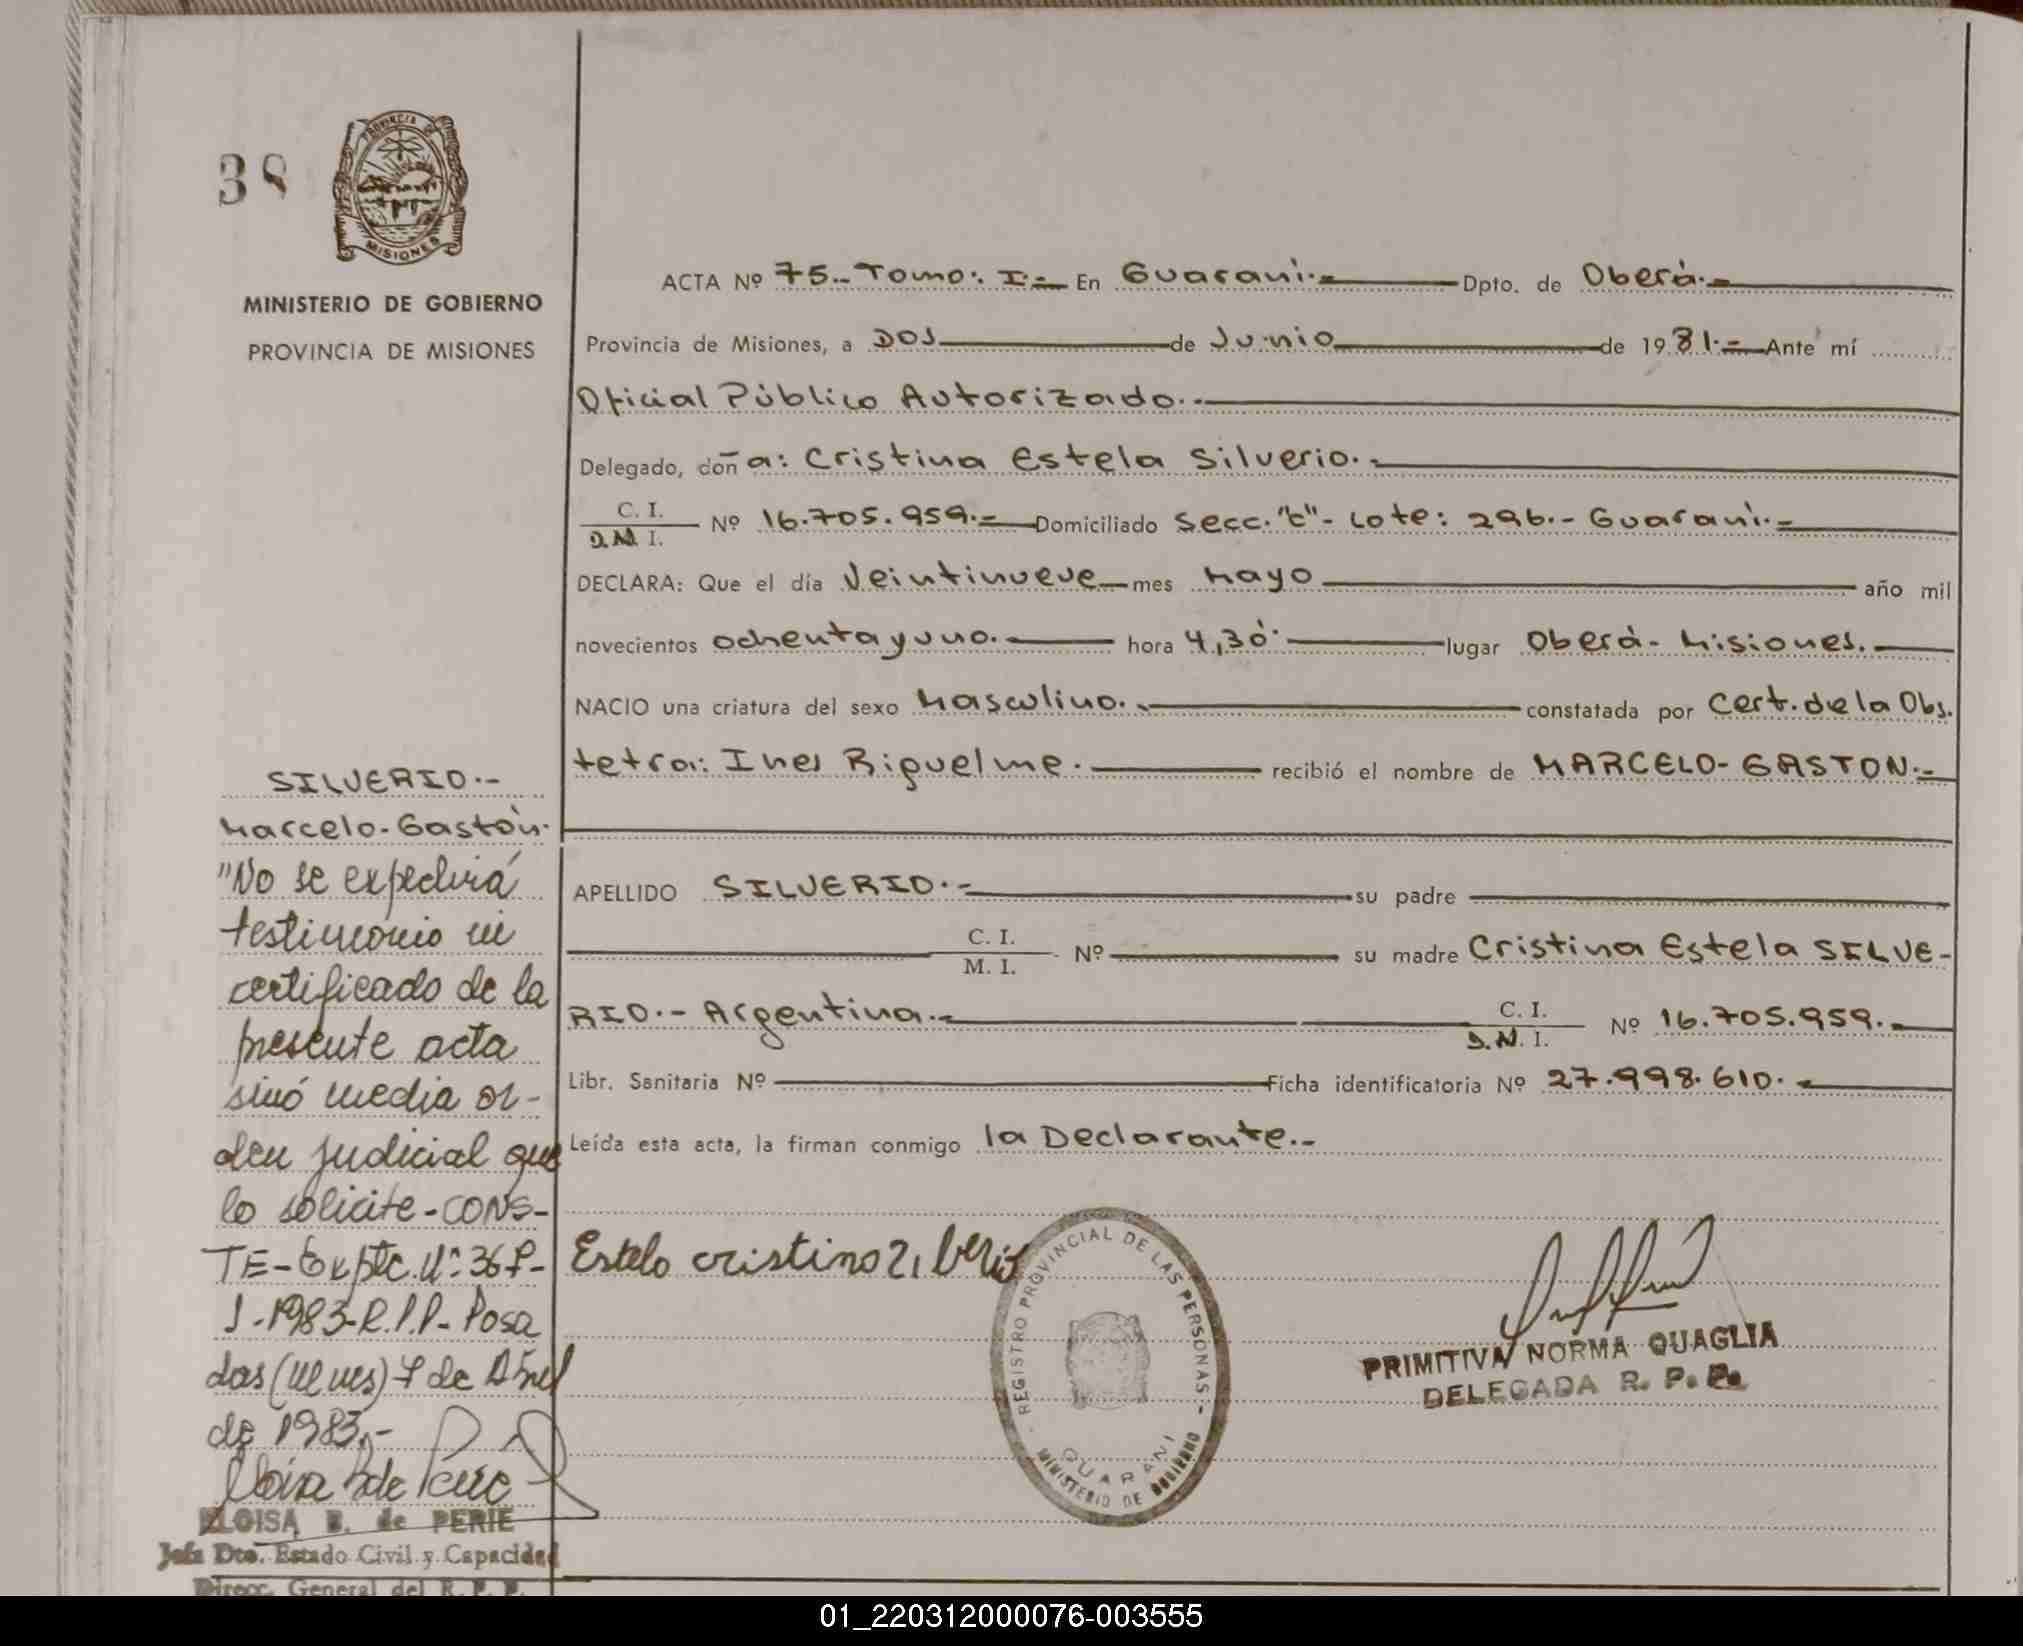 38
PROVINCIA DE
MISIONES
MINISTERIO DE GOBIERNO
PROVINCIA DE MISIONES
ACTA Nº 75.- Tomo: I.- En Guaraní.- Dpto. de Oberá.-
Provincia de Misiones, a Dos de Junio de 1981.- Ante mí
Oficial Público Autorizado.-
Delegado, doña: Cristina Estela Silverio.-
C. I.
D.N. I. Nº 16.705.959.- Domiciliado Secc. "C"- Lote: 296.- Guaraní.-
DECLARA: Que el día Veintinueve mes Mayo año mil
novecientos ochenta y uno.- hora 4,30 lugar Oberá- Misiones.-
NACIO una criatura del sexo Masculino.- constatada por Cert. de la Obs.
tetra: Ines Riquelme.- recibió el nombre de MARCELO- GASTON.-
APELLIDO SILVERIO.- su padre
C. I.
M. I. Nº su madre Cristina Estela SILVE-
RIO.- Argentina.- C. I.
D.N. I. Nº 16.705.959.-
Libr. Sanitaria Nº Ficha identificatoria Nº 27.998.610.-
Leída esta acta, la firman conmigo la Declarante.-
SILVERIO.-
Marcelo-Gastón.
"No se expedirá
testimonio ni
certificado de la
presente acta
sinó media or-
den judicial que
lo solicite-CONS-
TE-Expte. Nº 367-
S-1983-R.P.P- Posa
das (Mnes) 7 de Abril
de 1983.-
ELOISA B. de PERIE
Jefa Dto. Estado Civil y Capacidad
Direcc. General del R. P. P.
Estela cristina
REGISTRO PROVINCIAL DE LAS PERSONAS -
GUARANI
MINISTERIO DE GOBIERNO
PRIMITIVA NORMA QUAGLIA
DELEGADA R. P. P.
01_220312000076-003555